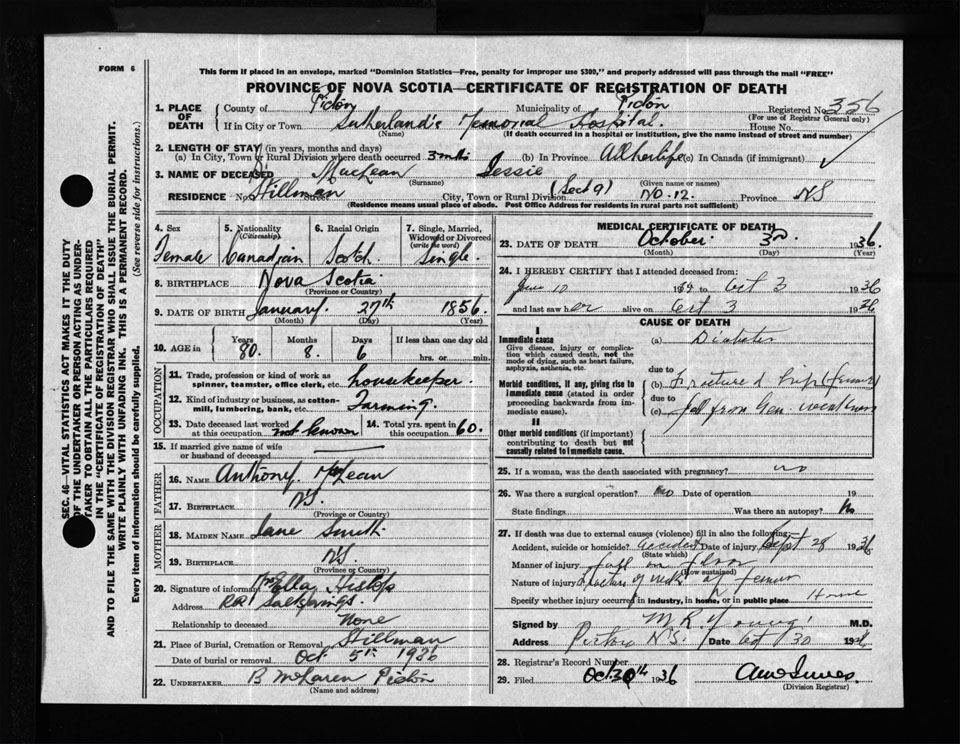 FORM 6
This form if placed in an envelope, marked "Dominion Statistics—Free, penalty for improper use $300," and properly addressed will pass through the mail "FREE"
PROVINCE OF NOVA SCOTIA—CERTIFICATE OF REGISTRATION OF DEATH
1. PLACE OF DEATH County of Pictou Municipality of Pictou Registered No. 356
(For use of Registrar General only)
If in City or Town Sutherland's Memorial Hospital. House No.
(Name) (If death occurred in a hospital or institution, give the name instead of street and number)
2. LENGTH OF STAY (in years, months and days)
(a) In City, Town or Rural Division where death occurred (b) In Province All her life (c) In Canada (if immigrant)
3. NAME OF DECEASED MacLean Jessie
(Surname) (Given name or names)
RESIDENCE No. Stillman Street City, Town or Rural Division (Sect 9) No. 12. Province NS
(Residence means usual place of abode. Post Office Address for residents in rural parts not sufficient)
4. Sex 5. Nationality (Citizenship) 6. Racial Origin 7. Single, Married, Widowed or Divorced (write the word)
Female Canadian Scotch Single.
8. BIRTHPLACE Nova Scotia
(Province or Country)
9. DATE OF BIRTH January. 27th 1856.
(Month) (Day) (Year)
10. AGE in Years Months Days If less than one day old
80. 8. 6 hrs. or min.
OCCUPATION
11. Trade, profession or kind of work as spinner, teamster, office clerk, etc. housekeeper.
12. Kind of industry or business, as cotton-mill, lumbering, bank, etc. Farming.
13. Date deceased last worked at this occupation not known 14. Total yrs. spent in this occupation 60.
15. If married give name of wife or husband of deceased
FATHER
16. NAME Anthony MacLean
17. BIRTHPLACE NS.
(Province or Country)
MOTHER
18. MAIDEN NAME Jane Smith
19. BIRTHPLACE NS.
(Province or Country)
20. Signature of informant Ella Hislop
Address RR Saltsprings.
Relationship to deceased None
21. Place of Burial, Cremation or Removal Stillman
Date of burial or removal Oct. 5th 1936
22. UNDERTAKER B McLaren Pictou
(Name and address)
MEDICAL CERTIFICATE OF DEATH
23. DATE OF DEATH October. 3rd. 1936.
(Month) (Day) (Year)
24. I HEREBY CERTIFY that I attended deceased from:
June 10 19 to Oct 3 1936
and last saw her alive on Oct 3 1936
CAUSE OF DEATH
I
Immediate cause
Give disease, injury or complication which caused death, not the mode of dying, such as heart failure, asphyxia, asthenia, etc.
(a) Diabetes
due to
Morbid conditions, if any, giving rise to immediate cause (stated in order proceeding backwards from immediate cause).
(b) Fractured hip (femur)
due to
(c) fall from Gen weakness
II
Other morbid conditions (if important) contributing to death but not causally related to immediate cause.
25. If a woman, was the death associated with pregnancy? no
26. Was there a surgical operation? no Date of operation 19
State findings Was there an autopsy? No
27. If death was due to external causes (violence) fill in also the following:
Accident, suicide or homicide? accident Date of injury Sept 28 1936
(State which)
Manner of injury fall on floor
(How sustained)
Nature of injury fracture of neck of femur
Specify whether injury occurred in industry, in home, or in public place Home
Signed by M R Young M.D.
Address Pictou N.S. Date Oct 30 1936
28. Registrar's Record Number
29. Filed Oct 30th 1936
(Division Registrar)
SEC. 46—VITAL STATISTICS ACT MAKES IT THE DUTY
OF THE UNDERTAKER OR PERSON ACTING AS UNDER-
TAKER TO OBTAIN ALL THE PARTICULARS REQUIRED
IN THE "CERTIFICATE OF REGISTRATION OF DEATH"
AND TO FILE THE SAME WITH THE DIVISION REGISTRAR WHO SHALL ISSUE THE BURIAL PERMIT.
WRITE PLAINLY WITH UNFADING INK. THIS IS A PERMANENT RECORD.
Every item of information should be carefully supplied. (See reverse side for instructions.)